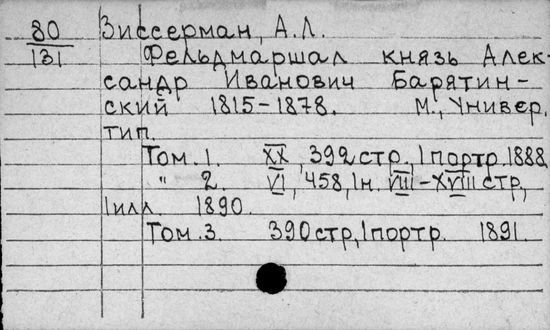 80 Зиссерман, А.Л.
131 Фельдмаршал князь Алек-
сандр Иванович Барятин-
ский 1815-1878. М., Универ.
тип.
Том. 1. XX, 392 стр., 1 портр. 1888
" 2. VI, 458, 1 н. VIII-XVIII стр.,
1 илл 1890.
Том. 3. 390 стр, 1 портр. 1891.